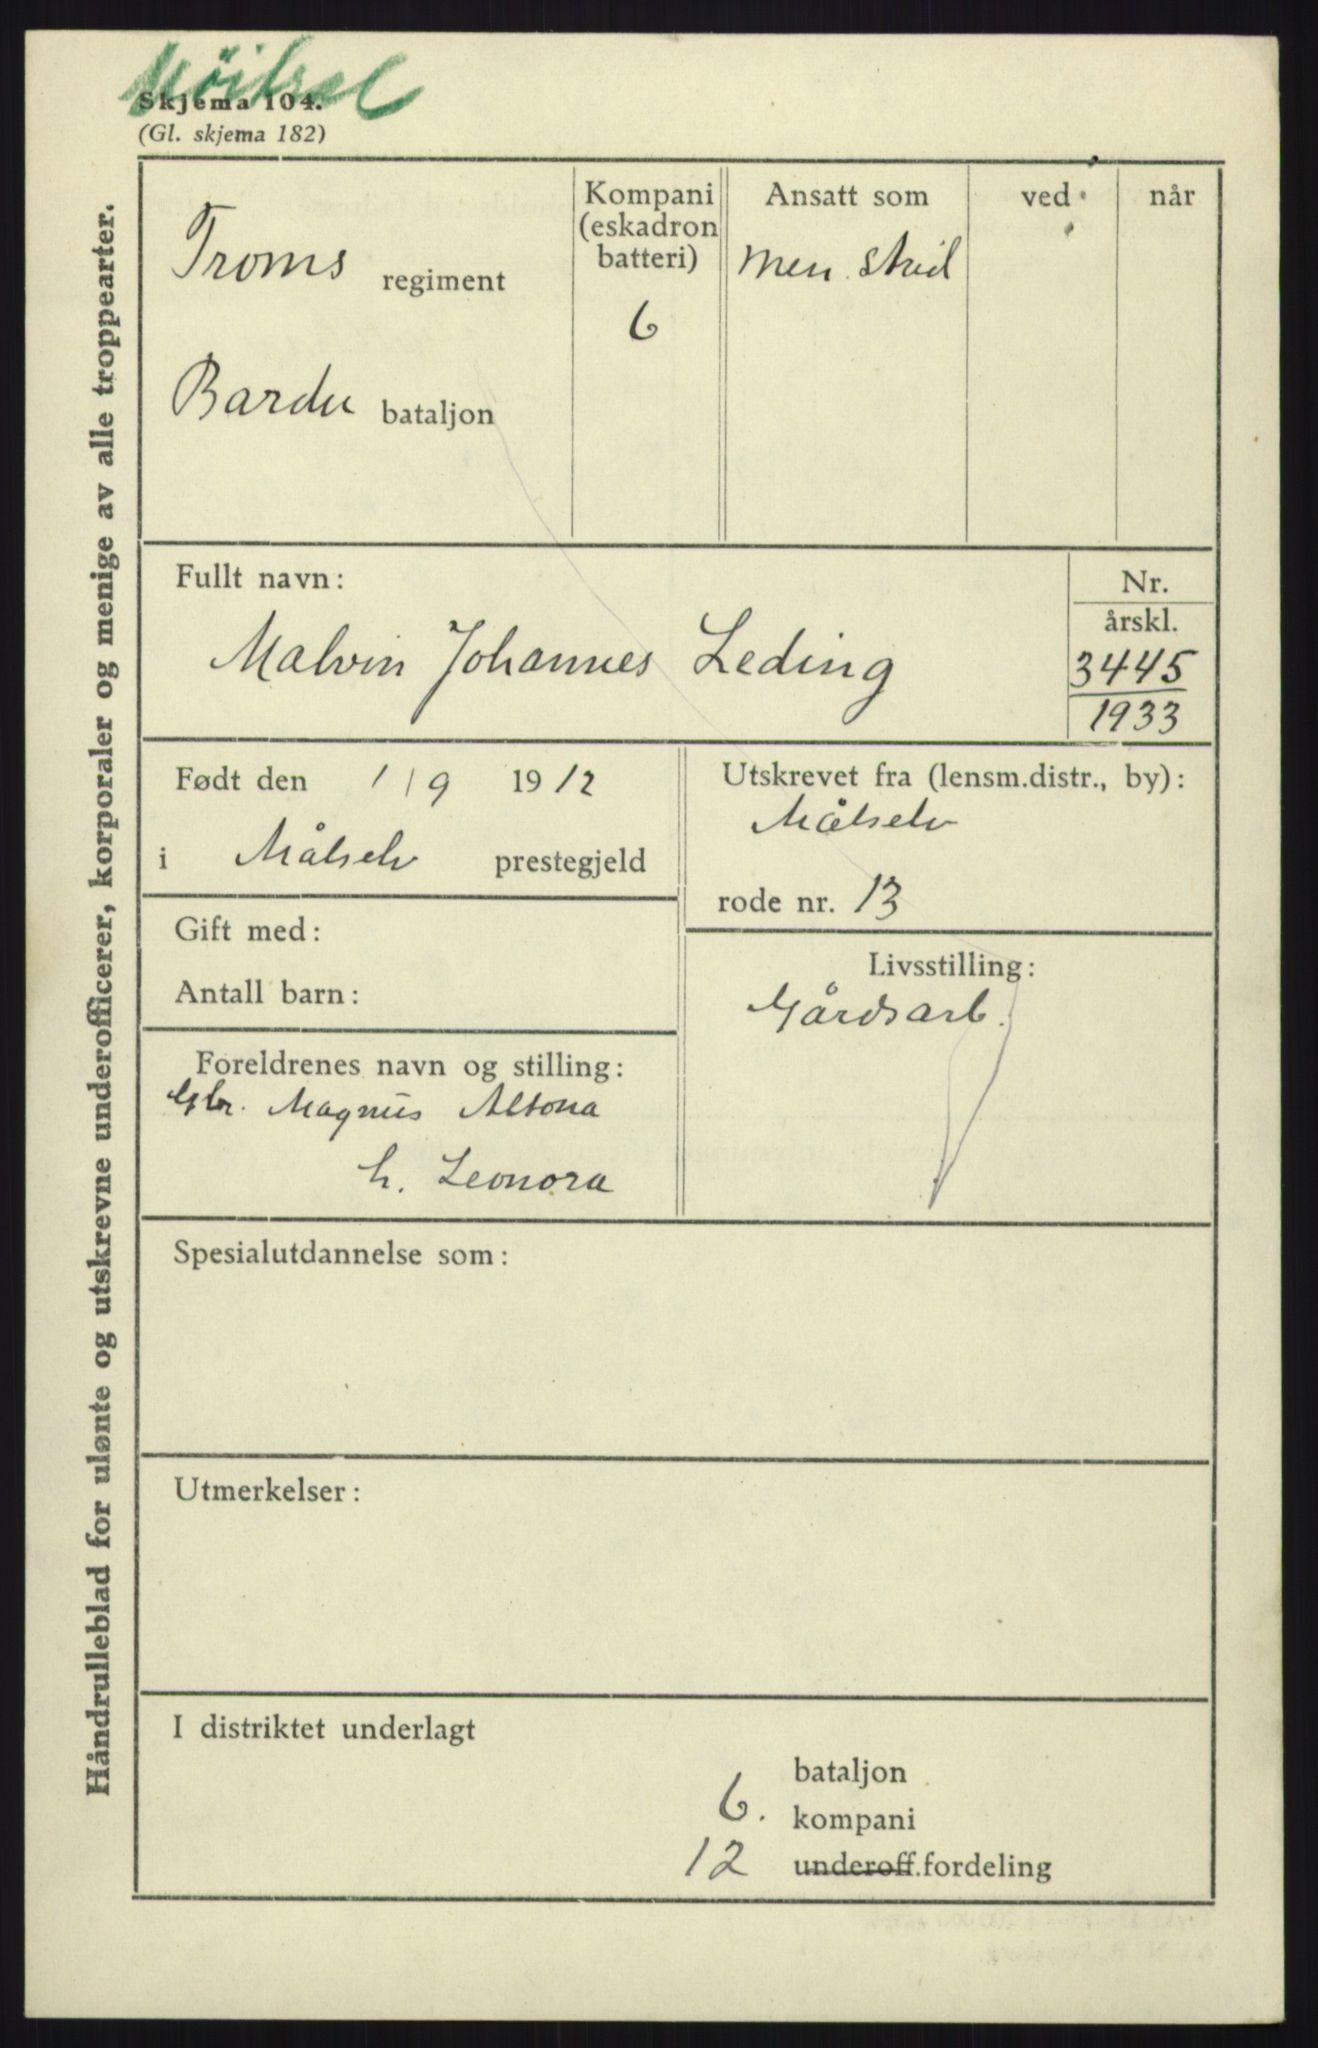 Skjema 104.
(Gl. skjema 182)
Håndrulleblad for ulønte og utskrevne underofficerer, korporaler og menige av alle troppearter.
Troms regiment
Bardu bataljon
Kompani
(eskadron
batteri)
6
Ansatt som
men. strid
ved
når
Fullt navn:
Malvin Johannes Leding
Nr.
årskl.
3445
1933
Født den 1/9 1912
i Målselv prestegjeld
Utskrevet fra (lensm.distr., by):
Målselv
rode nr. 13
Gift med:
Antall barn:
Livsstilling:
Gårdsarb.
Foreldrenes navn og stilling:
Gbr. Magnus Altona
h. Leonora
Spesialutdannelse som:
Utmerkelser:
I distriktet underlagt
bataljon
6. kompani
12 underoff.fordeling